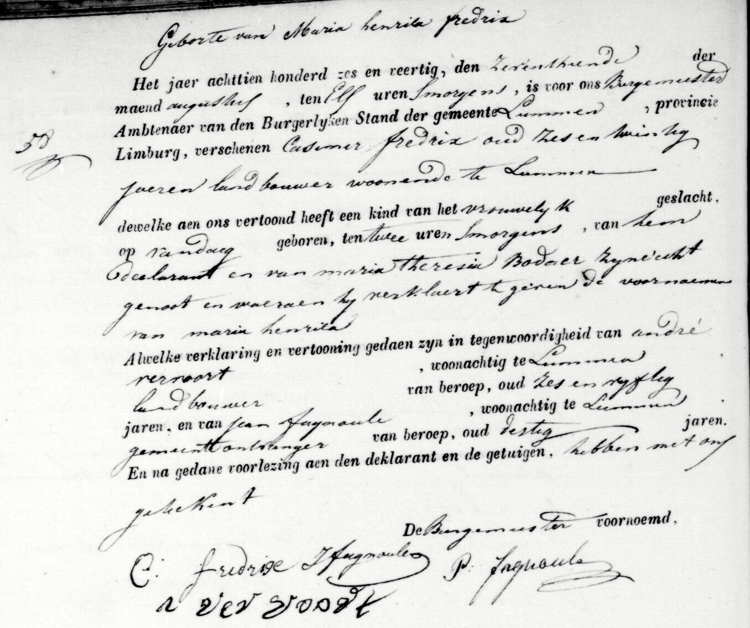 Geborte van Maria henrita fredrix
Het jaer achttien honderd zes en veertig, den zeventhiende der
maend augustus, ten Elf uren Smorgens, is voor ons Burgemeester
Ambtenaer van den Burgerlyken Stand der gemeente Lummen, provincie
58
Limburg, verschenen Casimer fredrix oud zes en twintig
jaeren landbouwer woonende te Lummen
dewelke aen ons vertoond heeft een kind van het vrouwelyk geslacht,
op vandaeg geboren, ten twee uren Smorgens, van hem
declarant en van maria theresia Bodaer zyne echt
genoot en waeraen hy verklaert te geven de voornaemen
van maria henrita
Alwelke verklaring en vertooning gedaen zyn in tegenwoordigheid van andré
vervoort, woonachtig te Lummen
landbouwer van beroep, oud zes en vyftig
jaren, en van jean fagnoule, woonachtig te Lummen
gemeente ontvanger van beroep, oud destig jaren.
En na gedane voorlezing aen den deklarant en de getuigen, hebben met ons
geteekent
De Burgemeester voornoemd,
C: fredrix J fagnoule P: fagnoule
a vervoort